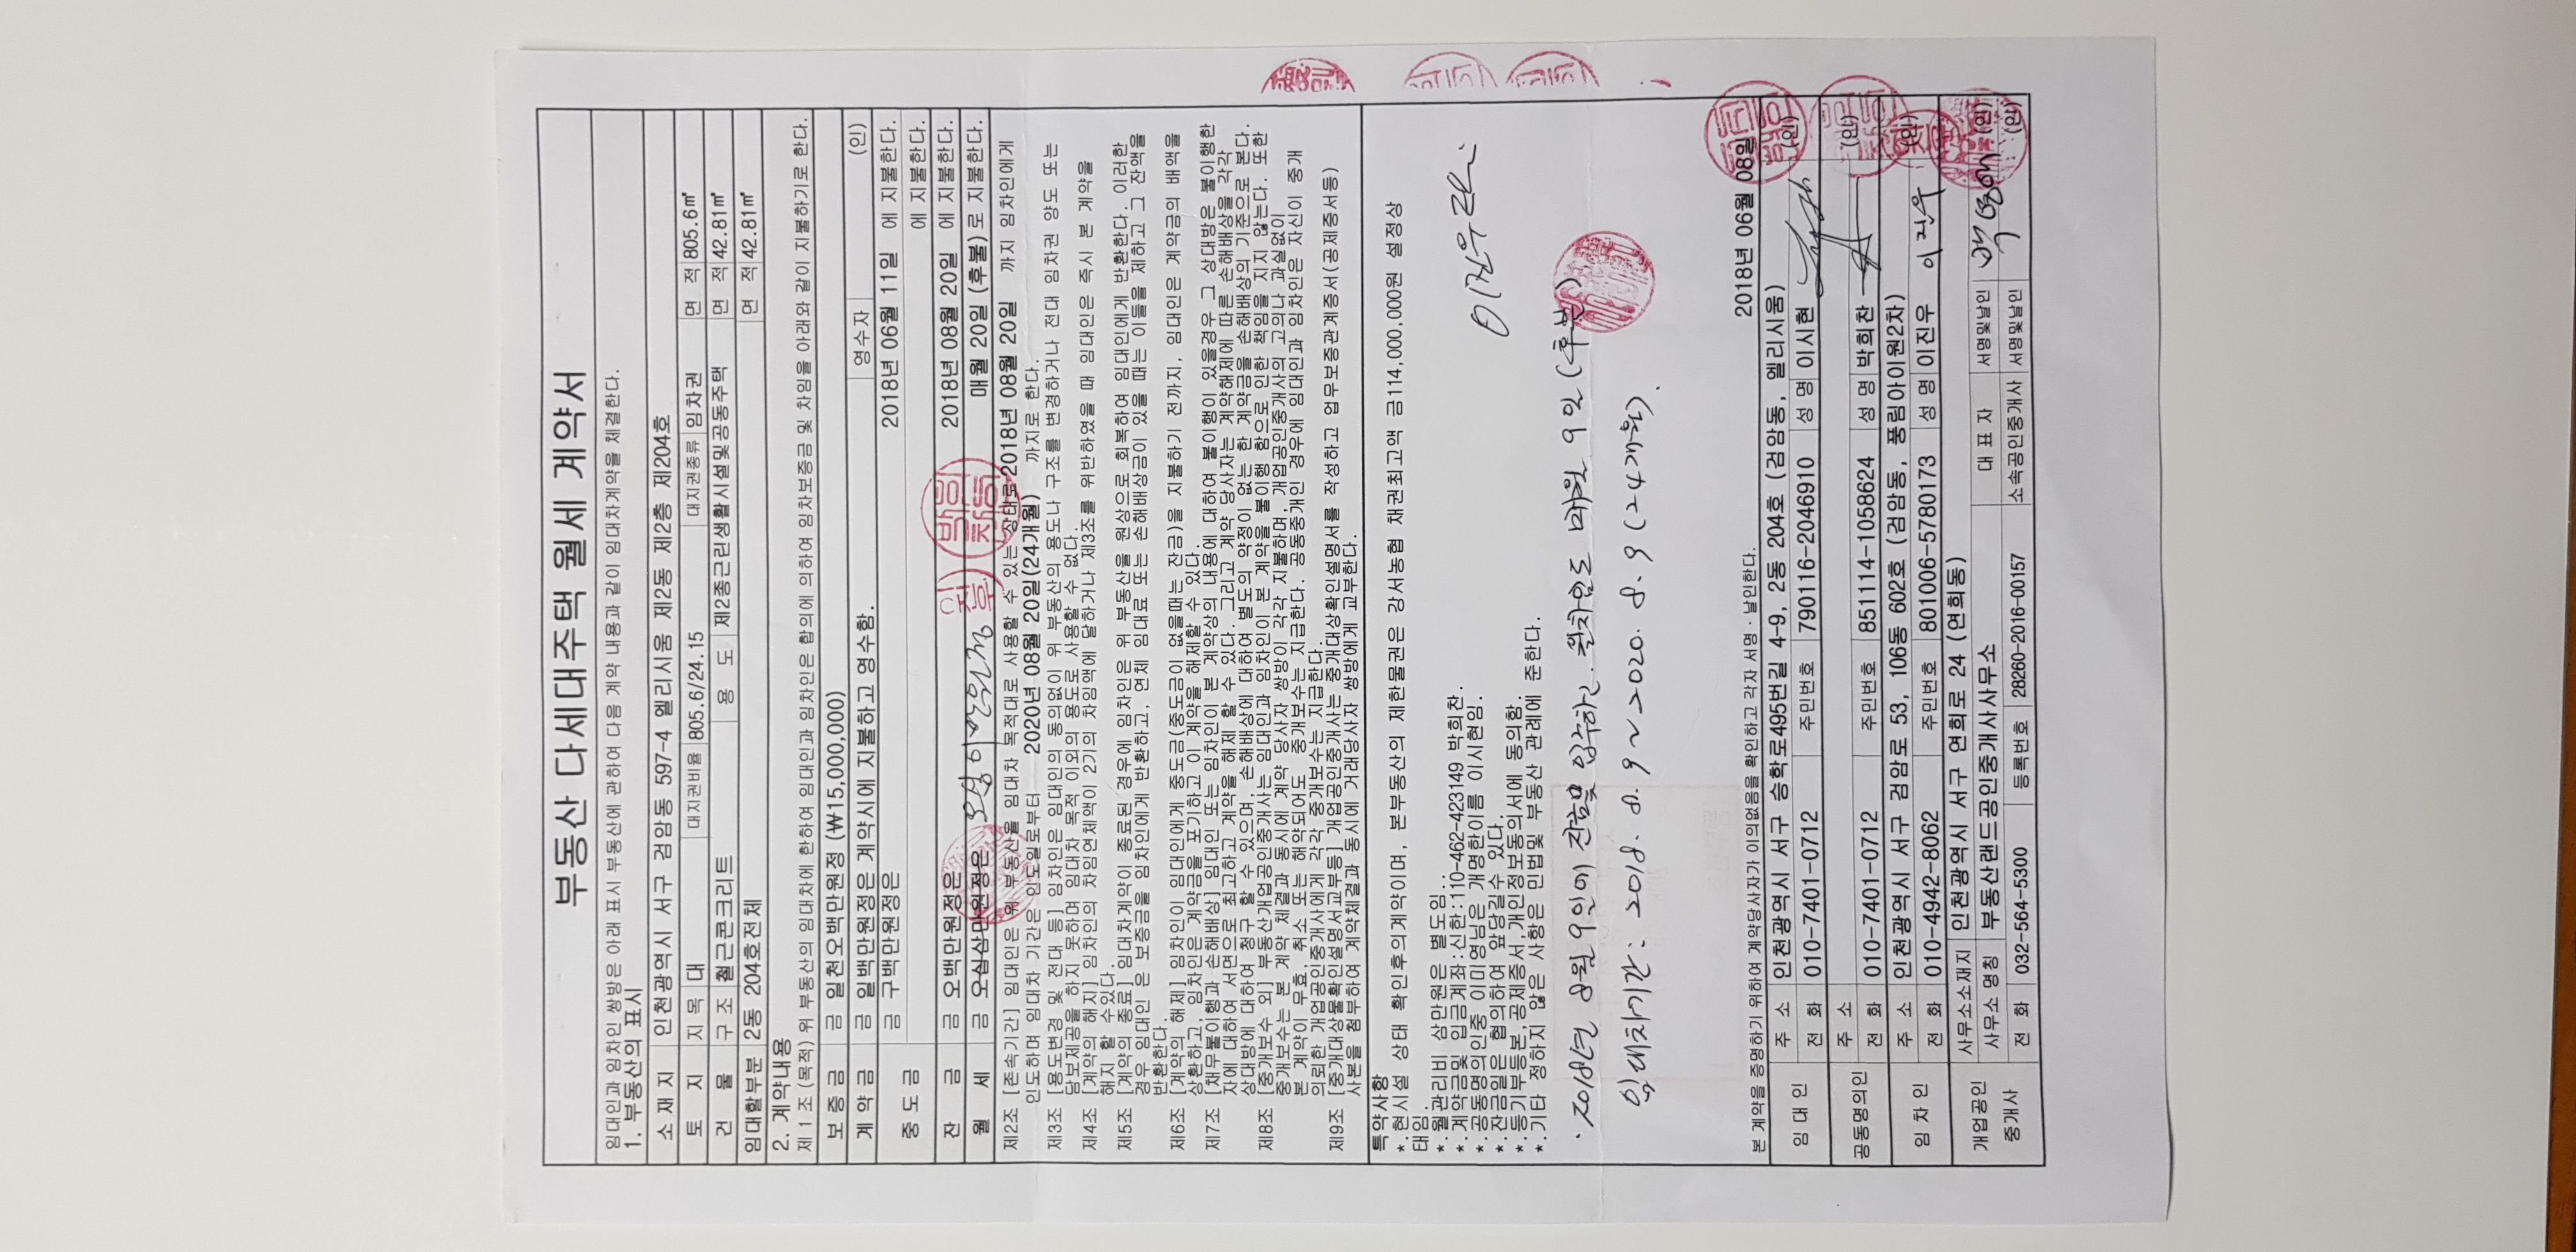 부동산 다세대주택 월세 계약서
임대인과 임차인 쌍방은 아래 표시 부동산에 관하여 다음 계약 내용과 같이 임대차계약을 체결한다.
1. 부동산의 표시
소 재 지 인천광역시 서구 검암동 597-4 엘리시움 제2동 제2층 제204호
토 지 지 목 대 대지권비율 805.6/24.15 대지권종류 임차권 면 적 805.6㎡
건 물 구 조 철근콘크리트 용 도 제2종근린생활시설및공동주택 면 적 42.81㎡
임대할부분 2동 204호전체 면 적 42.81㎡
2. 계약내용
제 1 조 (목적) 위 부동산의 임대차에 한하여 임대인과 임차인은 합의에 의하여 임차보증금 및 차임을 아래와 같이 지불하기로 한다.
보 증 금 금 일천오백만원정 (₩15,000,000)
계 약 금 금 일백만원정은 계약시에 지불하고 영수함. 영수자 (인)
중 도 금 금 구백만원정은 2018년 06월 11일 에 지불한다.
에 지불한다.
잔 금 금 오백만원정은 2018년 08월 20일 에 지불한다.
월 세 금 오십삼만원정은 매월 20일 (후불) 로 지불한다.
제2조 [존속기간] 임대인은 위 부동산을 임대차 목적대로 사용할 수 있는 상태로 2018년 08월 20일 까지 임차인에게
인도하며 임대차 기간은 인도일로부터 2020년 08월 20일(24개월) 까지로 한다.
제3조 [용도변경 및 전대 등] 임차인은 임대인의 동의없이 위 부동산의 용도나 구조를 변경하거나 전대 임차권 양도 또는
담보제공을 하지 못하며 임대차 목적 이외의 용도로 사용할 수 없다.
제4조 [계약의 해지] 임차인의 차임연체액이 2기의 차임액에 달하거나 제3조를 위반하였을 때 임대인은 즉시 본 계약을
해지 할 수있다.
제5조 [계약의 종료] 임대차계약이 종료된 경우에 임차인은 위 부동산을 원상으로 회복하여 임대인에게 반환한다. 이러한
경우 임대인 은 보증금을 임차인에게 반환하고, 연체 임대료 또는 손해배상금이 있을 때는 이들을 제하고 그 잔액을
반환한다.
제6조 [계약의 해제] 임차인이 임대인에게 중도금(중도금이 없을때는 잔금)을 지불하기 전까지, 임대인은 계약금의 배액을
상환하고, 임차인은 계약금을 포기하고 이 계약을 해제할 수 있다.
제7조 [채무불이행과 손해배상] 임대인 또는 임차인이 본 계약상의 내용에 대하여 불이행이 있을경우 그 상대방은 불이행한
자에 대하여 서면으로 최고하고 계약을 해제 할 수 있다. 그리고 계약 당사자는 계약해제에 따른 손해배상을 각각
상대방에 대하여 청구 할 수 있으며, 손해배상에 대하여 별도의 약정이 없는 한 계약금을 손해배상의 기준으로 본다.
제8조 [중개보수 외] 부동산개업공인중개사는 임대인과 임차인이 본 계약을 불이행 함으로 인한 책임을 지지 않는다. 또한
중개보수는 본 계약 체결과 동시에 계약 당사자 쌍방이 각각 지불하며, 개업공인중개사의 고의나 과실없이
본 계약이 무효, 취소 또는 해약되어도 중개보수는 지급한다. 공동중개인 경우에 임대인과 임차인은 자신이 중개
의뢰한 개업공인중개사에게 각각 중개보수는 지급한다.
제9조 [중개대상물확인설명서교부등] 개업공인중개사는 중개대상확인설명서를 작성하고 업무보증관계증서(공제증서등)
사본을 첨부하여 계약체결과 동시에 거래당사자 쌍방에게 교부한다.
특약사항
*.현시설 상태 확인후의계약이며, 본부동산의 제한물권은 강서농협 채권최고액 금114,000,000원 설정상
태임.
*.월관리비 삼만원은 별도임...
*.계약금및 입금계좌:신한:110-462-423149 박희찬.
*.공동명의인중 이미영님은 개명한이름 이시현임.
*.잔금일은 협의하여 앞당길수 있다.
*.등기부등본,공제증서,개인정보동의서에 동의함.
*.기타 정하지 않은 사항은 민법및 부동산 관례에 준한다.
이진우
· 2018년 8월 9일에 잔금및 입주하는. 월차임도 매월 9일 (후불)
임대차기간: 2018. 8. 9 ~ 2020. 8. 9 (24개월).
본 계약을 증명하기 위하여 계약당사자가 이의없음을 확인하고 각자 서명·날인한다. 2018년 06월 08일
임 대 인 주 소 인천광역시 서구 승학로495번길 4-9, 2동 204호 (검암동, 엘리시움)
전 화 010-7401-0712 주민번호 790116-2046910 성 명 이시현 (인)
공동명의인 주 소
전 화 010-7401-0712 주민번호 851114-1058624 성 명 박희찬 (인)
임 차 인 주 소 인천광역시 서구 검암로 53, 106동 602호 (검암동, 풍림아이원2차)
전 화 010-4942-8062 주민번호 801006-5780173 성 명 이진우 이진우 (인)
개업공인중개사 사무소소재지 인천광역시 서구 연희로 24 (연희동)
사무소 명칭 부동산랜드공인중개사사무소 대 표 자 서명및날인 (인)
전 화 032-564-5300 등록번호 28260-2016-00157 소속공인중개사 서명및날인 (인)